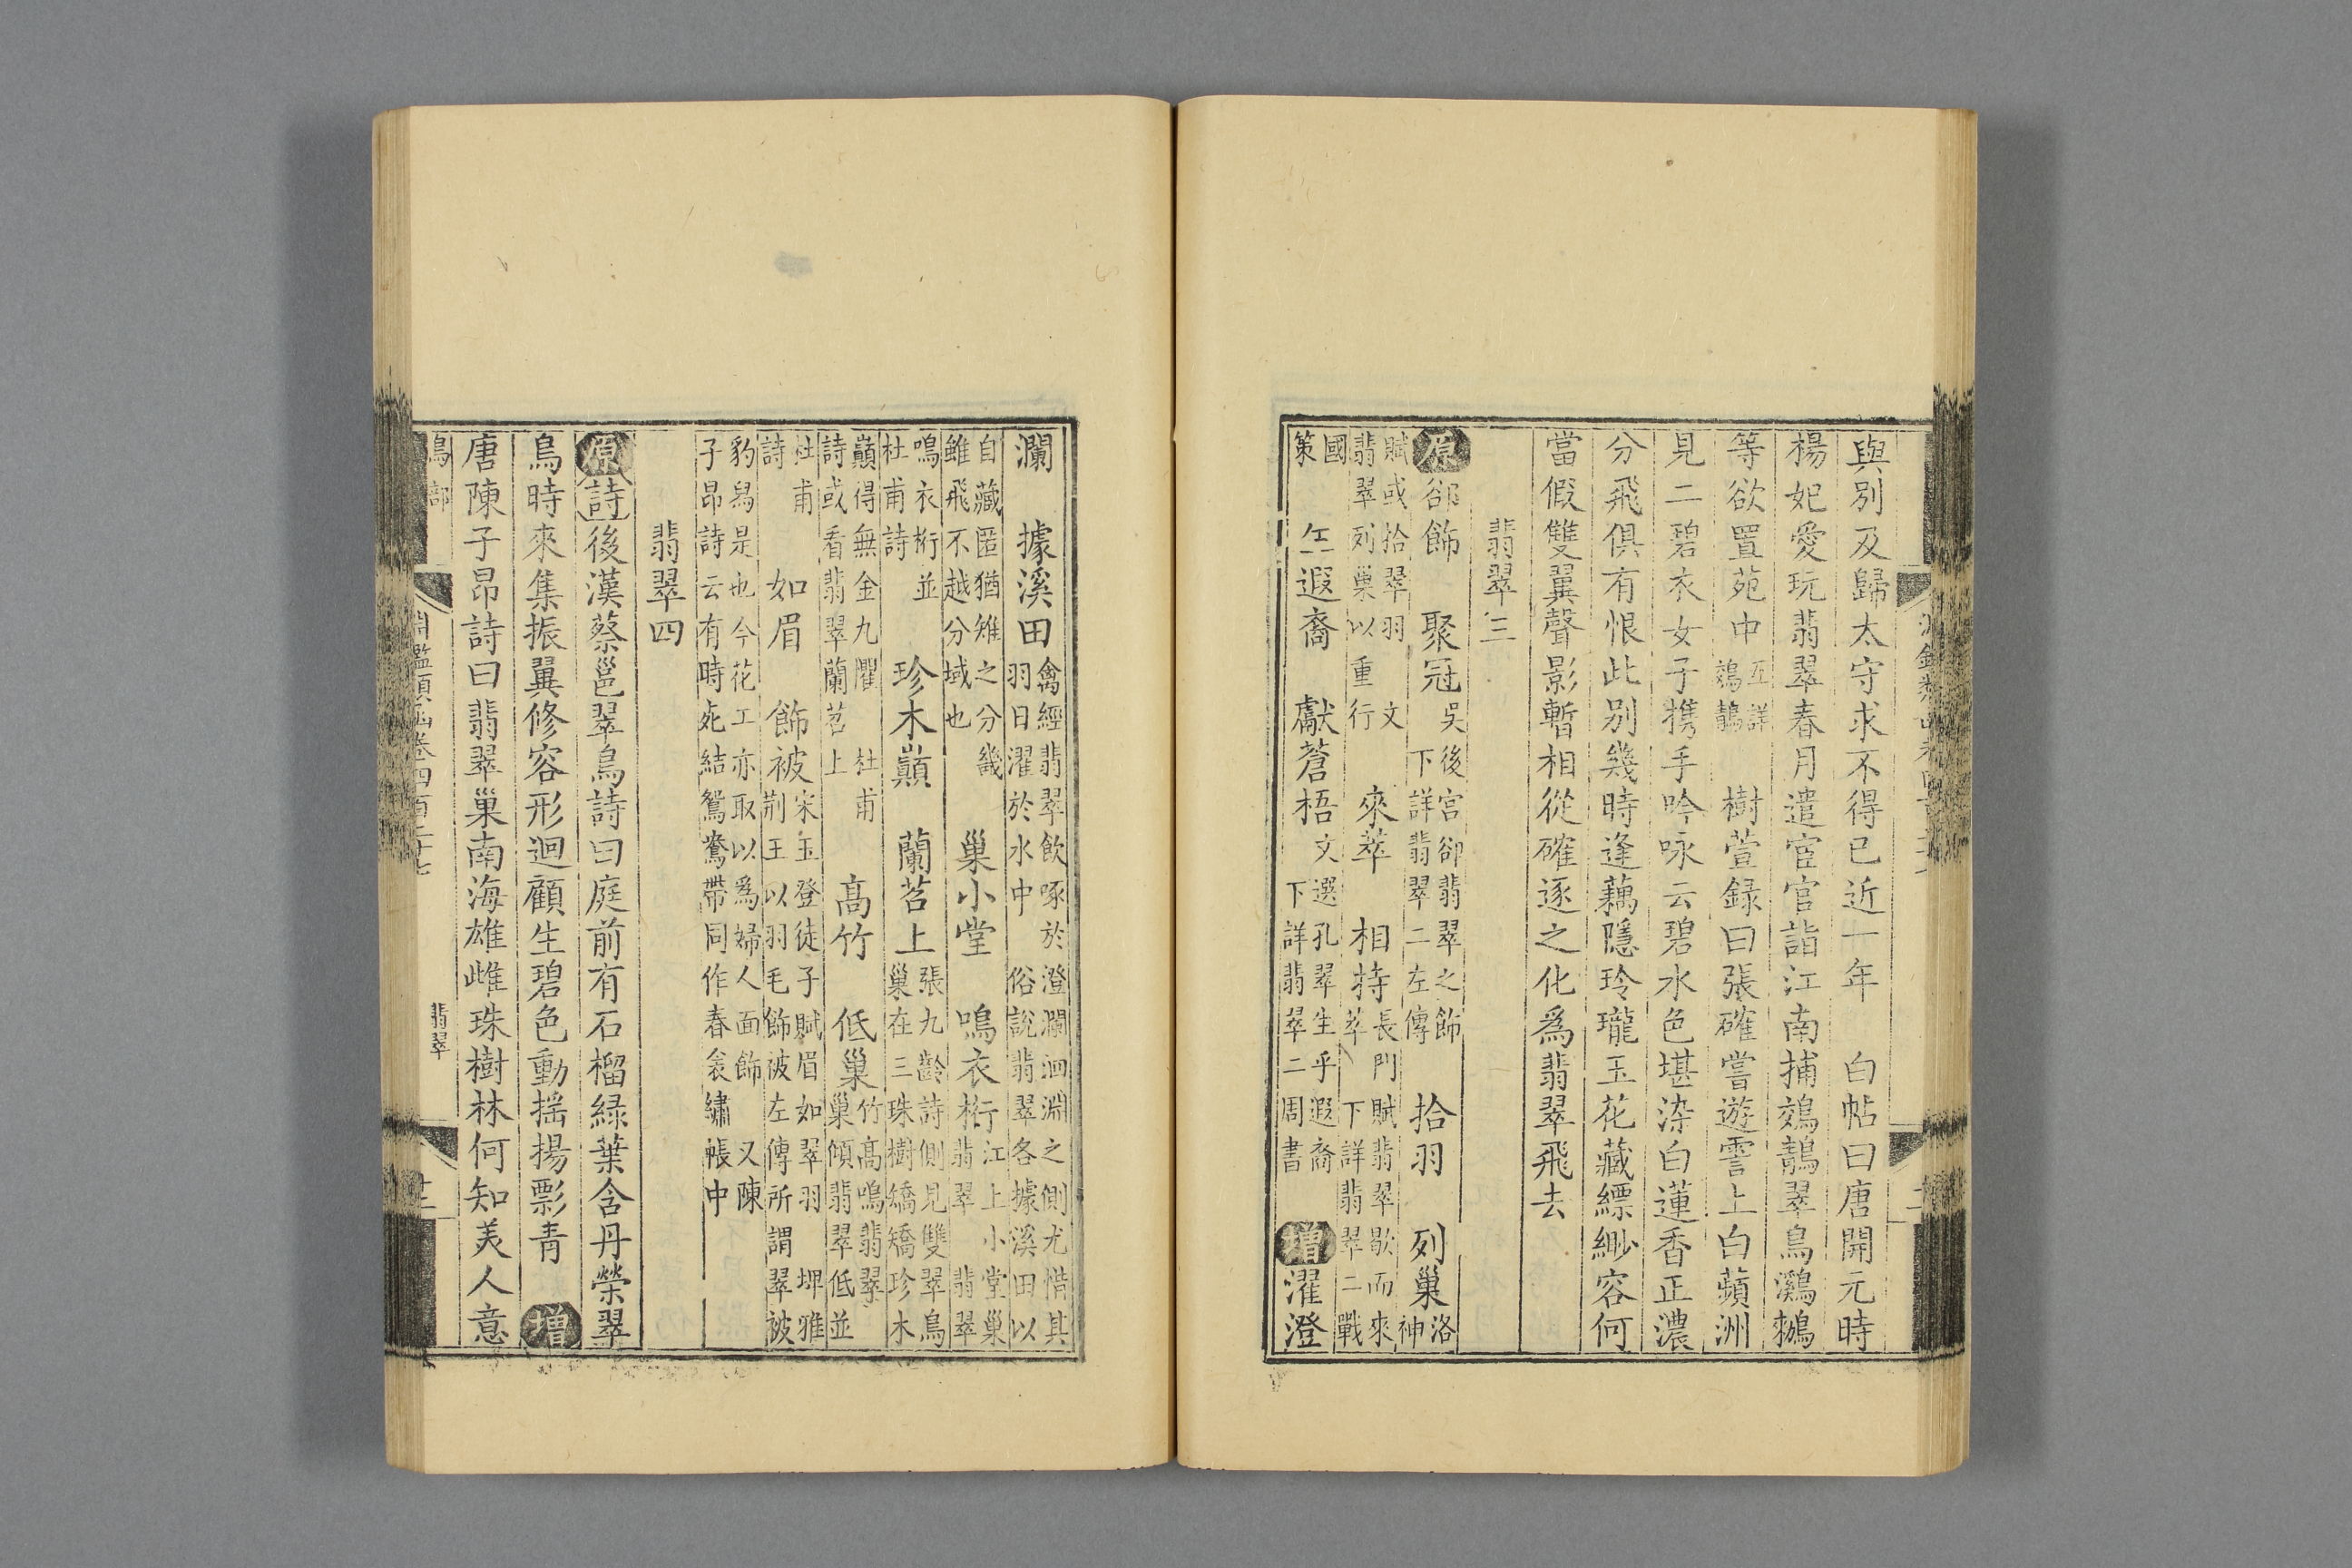 與別及歸太守求不得已近一年　白帖曰唐開元時
楊妃愛玩翡翠春月遣宦官詣江南捕鵁鶄翠鳥鸂鷘
等欲置苑中互詳鵁鶄　樹萱録曰張確嘗遊霅上白蘋洲
見二碧衣女子携手吟咏云碧水色堪染白蓮香正濃
分飛俱有恨此別幾時逢藕隱玲瓏玉花藏縹緲容何
當假雙翼聲影暫相從確逐之化為翡翠飛去
翡翠三
原郤飾　聚冠吳後宮郤翡翠之飾　下詳翡翠二左傳　拾羽　列巢洛神
賦或拾翠羽　文翡翠列巢以重行　來萃　相持長門賦翡翠歇而來萃　下詳翡翠二戰
國策　生遐裔　獻蒼梧文選孔翠生乎遐裔　下詳翡翠二周書　增濯澄
瀾　據溪田禽經翡翠飲啄於澄瀾洄淵之側尤惜其羽日濯於水中　俗說翡翠各據溪田以
自藏匿猶雉之分畿雖飛不越分域也　巢小堂　鳴衣桁江上小堂巢翡翠　翡翠
鳴衣桁並杜甫詩　珍木巔　蘭苕上張九齡詩側見雙翠鳥巢在三珠樹矯矯珍木
巔得無金九懼　杜甫詩或看翡翠蘭苕上　高竹　低巢竹高鳴翡翠巢傾翡翠低並
杜甫詩　如眉　飾被宋玉登徒子賦眉如翠羽　埤雅荆王以羽毛飾被左傳所謂翠被
豹舄是也今花工亦取以為婦人面飾　又陳子昂詩云有時宛結鴛鴦帶同作春衾繡帳中
翡翠四
原詩後漢蔡邕翠鳥詩曰庭前有石榴緑葉含丹榮翠
鳥時來集振翼修容形迴顧生碧色動揺揚彯青　增
唐陳子昂詩曰翡翠巢南海雄雌珠樹林何知美人意
鳥部　淵鑑類函卷四百二十七　翡翠